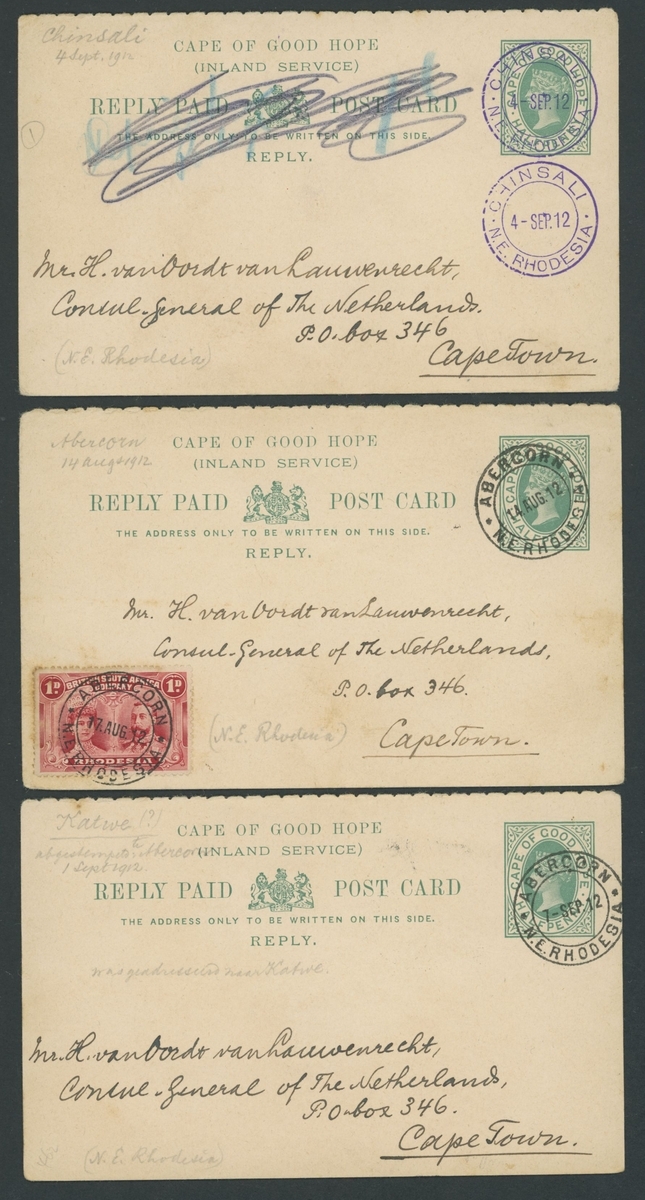 Chinsali
4 Sept. 1912
CAPE OF GOOD HOPE
(INLAND SERVICE)
REPLY PAID POST CARD
THE ADDRESS ONLY TO BE WRITTEN ON THIS SIDE.
REPLY.
1
CHINSALI
4-SEP.12
N.E. RHODESIA
CHINSALI
4-SEP.12
N.E. RHODESIA
Mr. H. van Oordt van Lauwenrecht,
Consul-General of The Netherlands.
P.O. box 346
Cape Town.
(N.E. Rhodesia)
Abercorn
14 Aug 1912
CAPE OF GOOD HOPE
(INLAND SERVICE)
REPLY PAID POST CARD
THE ADDRESS ONLY TO BE WRITTEN ON THIS SIDE.
REPLY.
ABERCORN
14.AUG.12
N.E. RHODESIA
Mr. H. van Oordt van Lauwenrecht,
Consul-General of The Netherlands,
P.O. box 346.
Cape Town.
(N.E. Rhodesia)
1D BRITISH SOUTH AFRICA COMPANY 1D
RHODESIA
ABERCORN
17.AUG.12
N.E. RHODESIA
Katwe (?)
abgestempeld te Abercorn
1 Sept 1912.
CAPE OF GOOD HOPE
(INLAND SERVICE)
REPLY PAID POST CARD
THE ADDRESS ONLY TO BE WRITTEN ON THIS SIDE.
REPLY.
CAPE OF GOOD HOPE
HALFPENNY
ABERCORN
1-SEP.12
N.E. RHODESIA
was geadresseerd naar Katwe.
Mr. H. van Oordt van Lauwenrecht,
Consul-General of The Netherlands,
P.O. box 346.
Cape Town.
(N.E. Rhodesia)